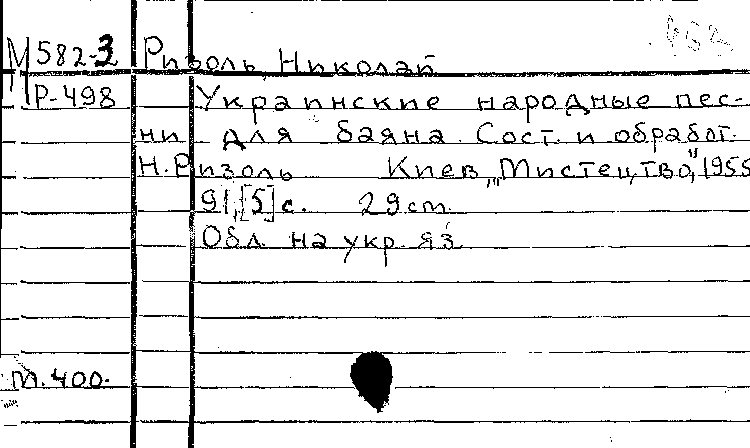 462
М 582-3 Ризоль, Николай
Р-498 Украинские народные пес-
ни для баяна. Сост. и обработ.
Н. Ризоль Киев, „Мистецтво", 1955
91, [5] с. 29 cm.
Обл. на укр. яз.
т. 400.